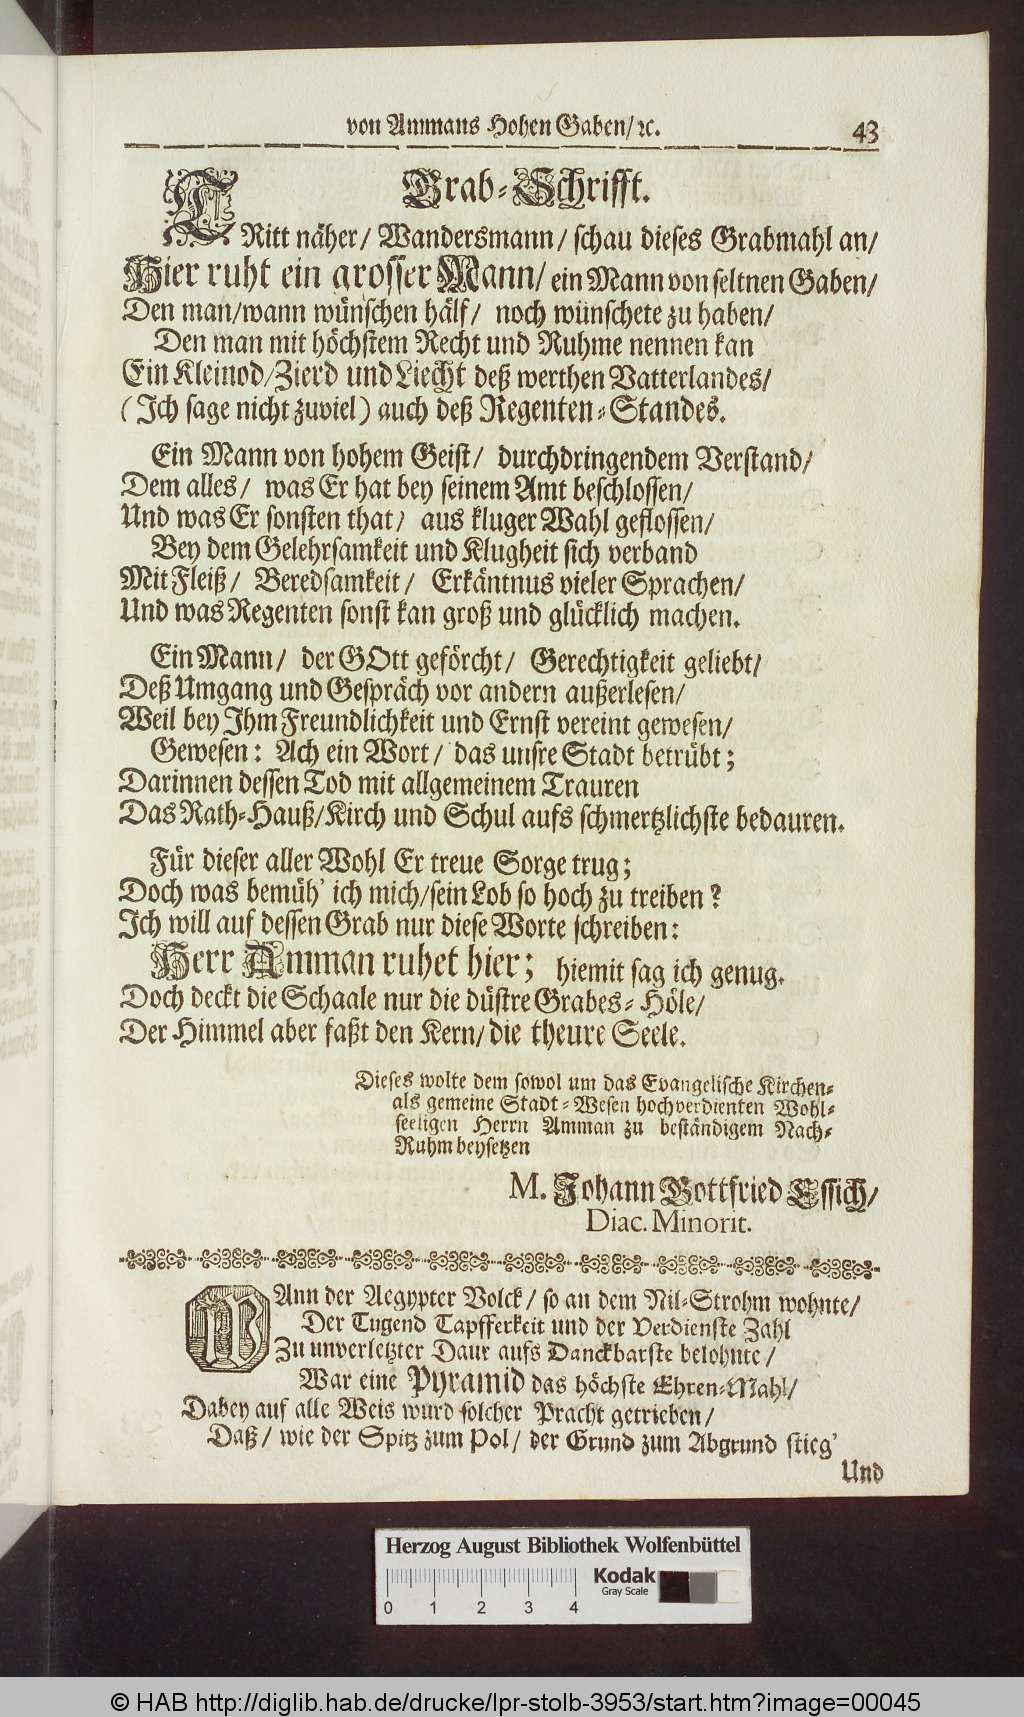 von Ammans Hohen Gaben/ ꝛc. 43
Grab-Schrifft.
TRitt näher/ Wandersmann/ schau dieses Grabmahl an/
Hier ruht ein grosser Mann/ ein Mann von seltnen Gaben/
Den man/wann wünschen hälf/ noch wünschete zu haben/
Den man mit höchstem Recht und Ruhme nennen kan
Ein Kleinod/Zierd und Liecht deß werthen Vatterlandes/
(Ich sage nicht zuviel) auch deß Regenten-Standes.
Ein Mann von hohem Geist/ durchdringendem Verstand/
Dem alles/ was Er hat bey seinem Amt beschlossen/
Und was Er sonsten that/ aus kluger Wahl geflossen/
Bey dem Gelehrsamkeit und Klugheit sich verband
Mit Fleiß/ Beredsamkeit/ Erkäntnus vieler Sprachen/
Und was Regenten sonst kan groß und glücklich machen.
Ein Mann/ der GOtt geförcht/ Gerechtigkeit geliebt/
Deß Umgang und Gespräch vor andern außerlesen/
Weil bey Ihm Freundlichkeit und Ernst vereint gewesen/
Gewesen: Ach ein Wort/ das unsre Stadt betrübt;
Darinnen dessen Tod mit allgemeinem Trauren
Das Rath-Hauß/Kirch und Schul aufs schmertzlichste bedauren.
Für dieser aller Wohl Er treue Sorge trug;
Doch was bemüh' ich mich/sein Lob so hoch zu treiben?
Ich will auf dessen Grab nur diese Worte schreiben:
Herr Amman ruhet hier; hiemit sag ich genug.
Doch deckt die Schaale nur die düstre Grabes-Höle/
Der Himmel aber faßt den Kern/ die theure Seele.
Dieses wolte dem sowol um das Evangelische Kirchen-
als gemeine Stadt-Wesen hochverdienten Wohl-
seeligen Herrn Amman zu beständigem Nach-
Ruhm beysetzen
M. Johann Gottfried Essich/
Diac. Minorit.
WAnn der Aegypter Volck/ so an dem Nil-Strohm wohnte/
Der Tugend Tapfferkeit und der Verdienste Zahl
Zu unverletzter Daur aufs Danckbarste belohnte/
War eine Pyramid das höchste Ehren-Mahl/
Dabey auf alle Weis wurd solcher Pracht getrieben/
Daß/ wie der Spitz zum Pol/ der Grund zum Abgrund stieg'
Und
Herzog August Bibliothek Wolfenbüttel
Kodak
Gray Scale
0 1 2 3 4
© HAB http://diglib.hab.de/drucke/lpr-stolb-3953/start.htm?image=00045